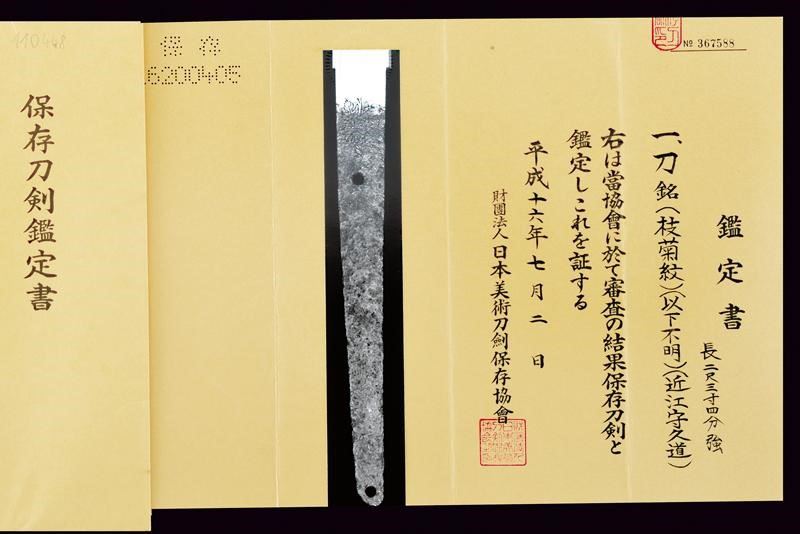 保存刀剣鑑定書
110448
保存
6200405
№ 367588
鑑定書
一、刀 銘(枝菊紋)(以下不明)(近江守久道)
長二尺三寸四分強
右は當協會に於て審査の結果保存刀剣と
鑑定しこれを証する
平成十六年七月二日
財團法人 日本美術刀劍保存協會